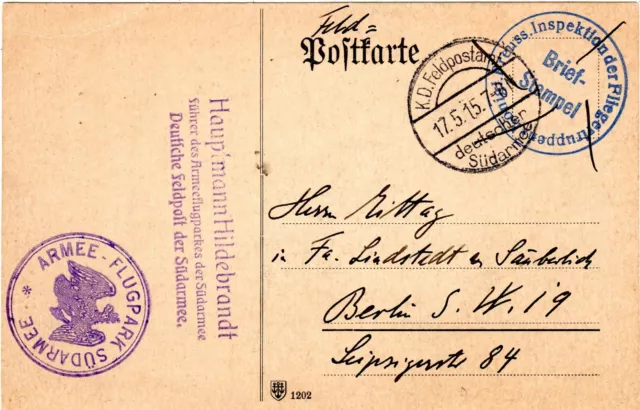 Feld=
Postkarte
K.D. Feldpostamt
17.5.15.7-8
deutscher
Südarmee
Preuss. Inspektion der Fliegertruppen
Brief-
Stempel
Hauptmann Hildebrandt
Führer des Armeeflugparkes der Südarmee
Deutsche Feldpost der Südarmee.
ARMEE-FLUGPARK SÜDARMEE *
Herrn Mittag
in Fa. Lindstedt u Säuberlich
Berlin S. W. 19
Leipzigerstr 84
1202